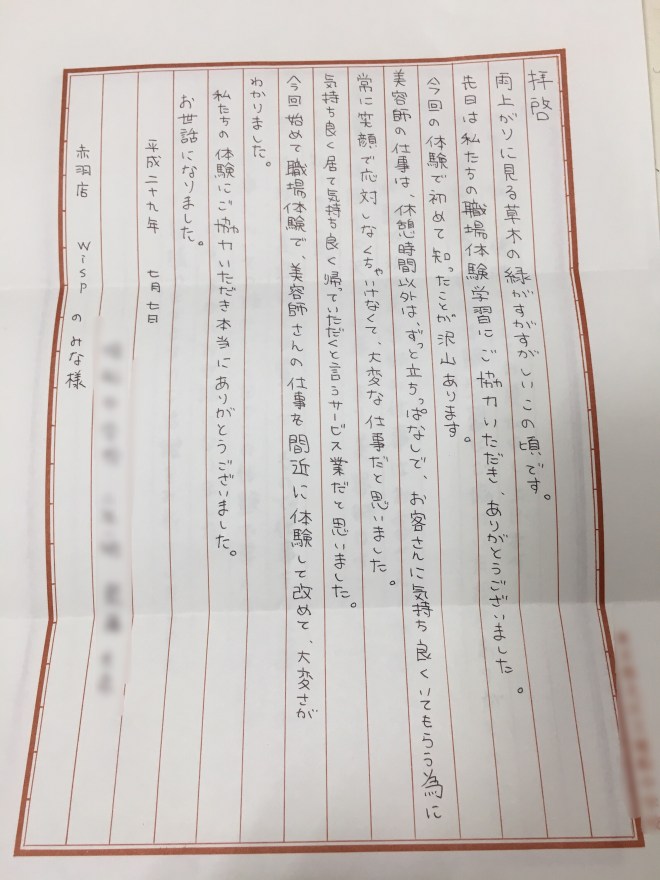 拝啓
雨上がりに見る草木の緑がすがすがしいこの頃です。
先日は私たちの職場体験学習にご協力いただき、ありがとうございました。
今回の体験で初めて知ったことが沢山あります。
美容師の仕事は、休憩時間以外は、ずっと立ちっぱなしで、お客さんに気持ち良くいてもらう為に
常に笑顔で応対しなくちゃいけなくて、大変な仕事だと思いました。
気持ち良く居て気持ち良く帰っていただくと言うサービス業だと思いました。
今回始めて職場体験で、美容師さんの仕事を間近に体験して改めて、大変さが
わかりました。
私たちの体験にご協力いただき本当にありがとうございました。
お世話になりました。
平成二十九年 七月七日
赤羽店 wisp のみな様